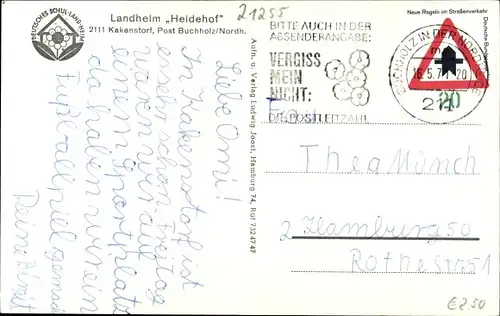 DEUTSCHES SCHUL-LAND-HEIM
Landheim „Heidehof"
2111 Kakenstorf, Post Buchholz/Nordh.
21255
BITTE AUCH IN DER
ABSENDERANGABE:
VERGISS
MEIN
NICHT:
DIE POSTLEITZAHL
Neue Regeln im Straßenverkehr
Deutsche Bundespost
20
BUCHHOLZ IN DER NORDHEIDE
211
Aufn. u. Verlag Ludwig Joost, Hamburg 74, Ruf 7324747
Liebe Omi!
In Kakenstorf ist
es sehr schön. Freitag
waren wir auf
einem Sportplatz
da haben wir ein
Fußballspiel gemacht
Deine Birgit
Thea Münch
2 Hamburg 50
Rothestr 51
€250